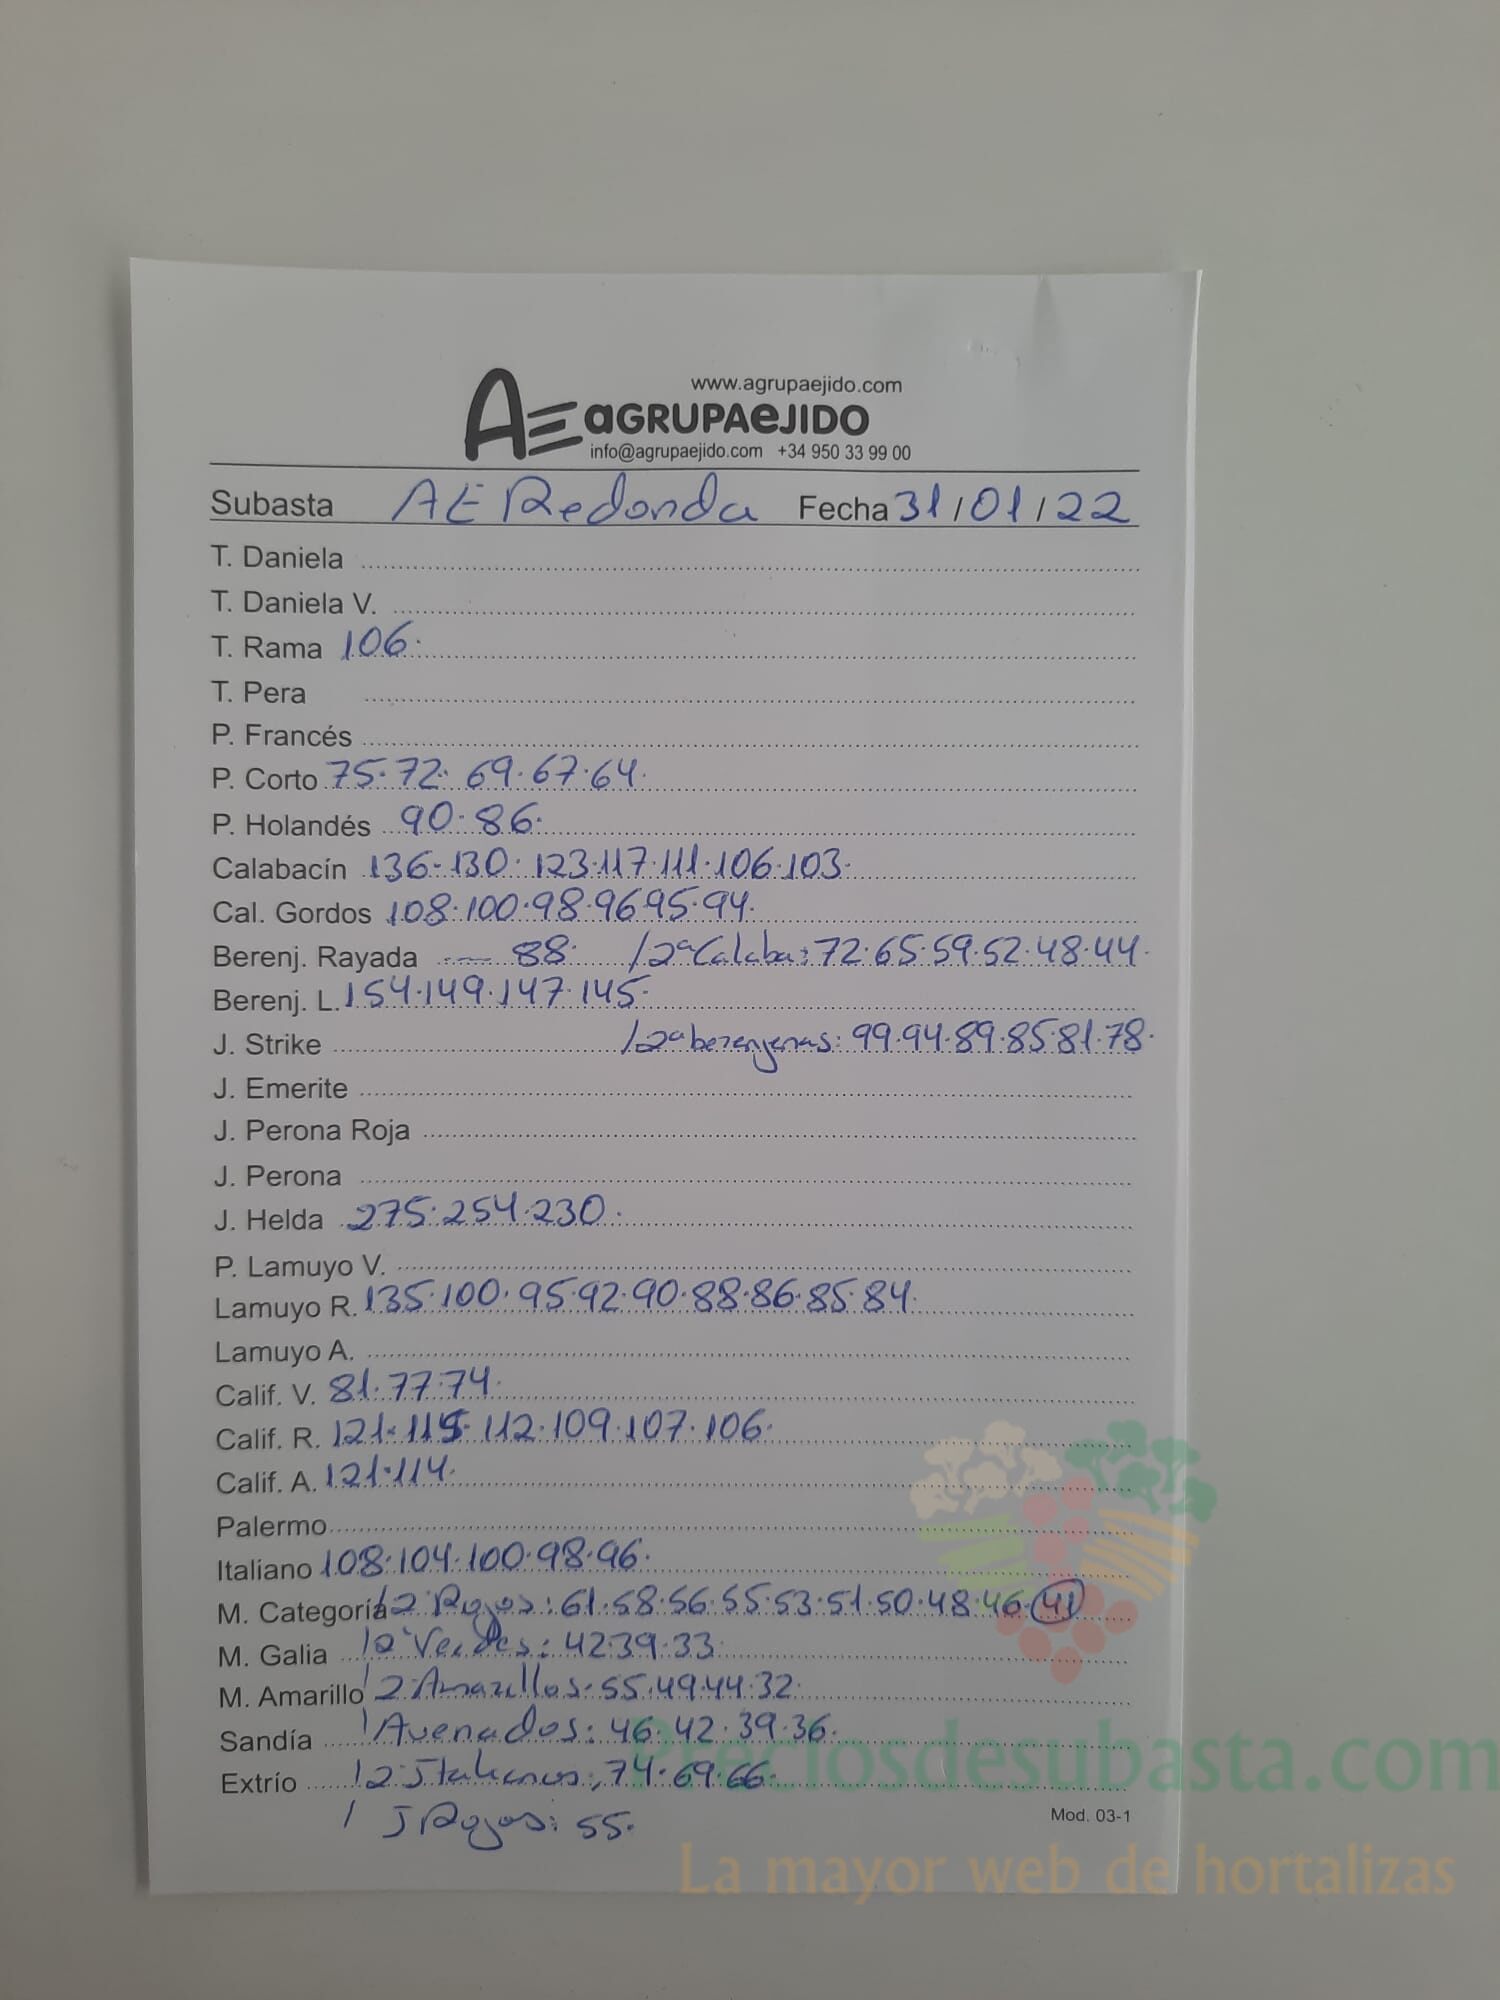 www.agrupaejido.com
AE AGRUPAEJIDO
info@agrupaejido.com +34 950 33 99 00
Subasta AE Redonda Fecha 31/01/22
T. Daniela
T. Daniela V.
T. Rama 106.
T. Pera
P. Francés
P. Corto 75.72.69.67.64.
P. Holandés 90.86.
Calabacín 136.130.123.117.111.106.103.
Cal. Gordos 108.100.98.96.95.94.
Berenj. Rayada -- 88. /2ª Calaba: 72.65.59.52.48.44.
Berenj. L. 154.149.147.145.
J. Strike /2ª berenjenas: 99.94.89.85.81.78.
J. Emerite
J. Perona Roja
J. Perona
J. Helda 275.254.230.
P. Lamuyo V.
Lamuyo R. 135.100.95.92.90.88.86.85.84.
Lamuyo A.
Calif. V. 81.77.74.
Calif. R. 121.115.112.109.107.106.
Calif. A. 121.114.
Palermo
Italiano 108.104.100.98.96.
M. Categoría /2ª Rojos: 61.58.56.55.53.51.50.48.46.41
M. Galia /2ª Verdes: 42.39.33.
M. Amarillo /2 Amarillos: 55.49.44.32.
Sandía / Asenados: 46.42.39.36.
Extrío /2 Italianos: 74.69.66.
/ J Rojos: 55.
Mod. 03-1
Preciosdesubasta.com
La mayor web de hortalizas